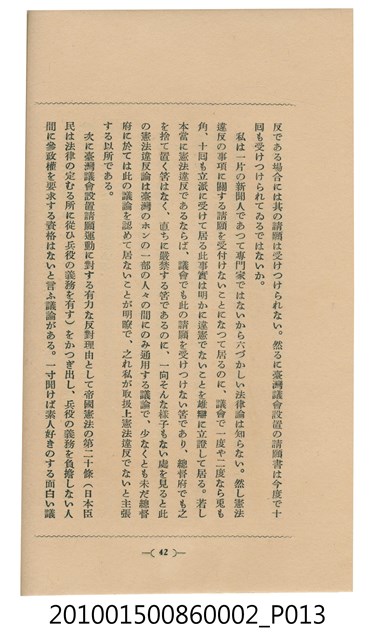 反である場合には其の請願は受けつけられない。然るに臺灣議會設置の請願書は今度で十
回も受けつけられてゐるではないか。
私は一片の新聞人であつて專門家ではないから六づかしい法律論は知らない。然し憲法
違反の事項に關する請願を受付けないことになつて居るのに、議會で一度や二度なら兎も
角、十回も立派に受けて居る此事實は明かに違憲でないことを雄辯に立證して居る。若し
本當に憲法違反であるならば、議會でも此の請願を受けつけない筈であり、總督府でも之
を捨て置く筈はなく、直ちに嚴禁する筈であるのに、一向そんな樣子もない處を見ると此
の憲法違反論は臺灣のホンの一部の人々の間にのみ通用する議論で、少なくとも未だ總督
府に於ては此の議論を認めて居ないことが明瞭で、之れ私が取扱上憲法違反でないと主張
する以所である。
次に臺灣議會設置請願運動に對する有力な反對理由として帝國憲法の第二十條（日本臣
民は法律の定むる所に從ひ兵役の義務を有す）をかつぎ出し、兵役の義務を負擔しない人
間に參政權を要求する資格はないと言ふ議論がある。一寸聞けば素人好きのする面白い議
42
201001500860002_P013